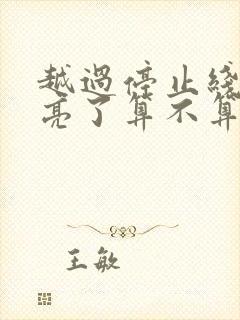 越過停止綫
亮了算不算
王敏